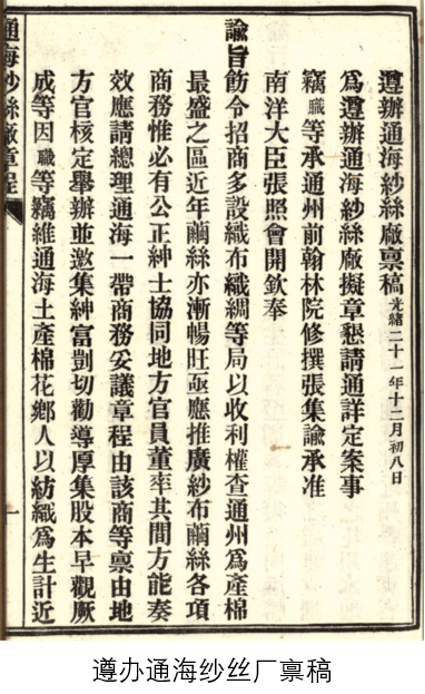 遵辦通海紗絲廠禀稿 光緒二十一年十二月初八日
爲遵辦通海紗絲廠擬章懇請通詳定案事
竊職等承通州前翰林院修撰張集諭承准
南洋大臣張照會開欽奉
諭旨飭令招商多設織布織綢等局以收利權查通州爲產棉
最盛之區近年繭絲亦漸暢旺亟應推廣紗布繭絲各項
商務惟必有公正紳士協同地方官員董率其間方能奏
效應請總理通海一帶商務妥議章程由該商等禀由地
方官核定舉辦並邀集紳富剴切勸導厚集股本早觀厥
成等因職等竊維通海土產棉花鄉人以紡織爲生計近
通海紗絲廠章程
一
遵办通海纱丝厂禀稿